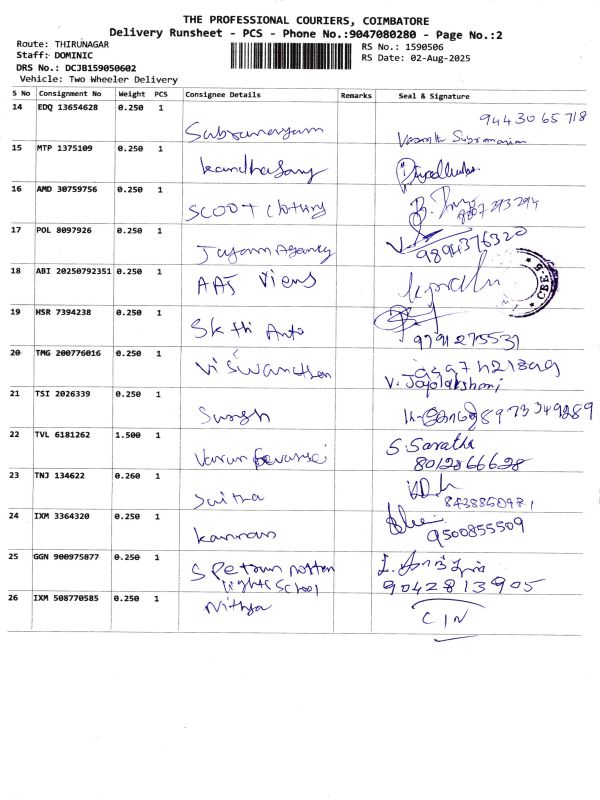 THE PROFESSIONAL COURIERS, COIMBATORE
Delivery Runsheet - PCS - Phone No.:9047080280 - Page No.:2
Route: THIRUNAGAR
RS No.: 1590506
Staff: DOMINIC
RS Date: 02-Aug-2025
DRS No.: DCJB159050602
Vehicle: Two Wheeler Delivery
S No Consignment No Weight PCS Consignee Details Remarks Seal & Signature
14 EDQ 13654628 0.250 1 9443065718
15 MTP 1375109 0.250 1 Kandhasamy
16 AMD 30759756 0.250 1 SCOOT Clothing
17 POL 8097926 0.250 1 Jayam Agency 9894376320
18 ABI 20250792351 0.250 1 AAJ Views
19 HSR 7394238 0.250 1 Sakthi Auto 9791275531
20 TMG 200776016 0.250 1 Viswanathan
21 TSI 2026339 0.250 1 8973349289
22 TVL 6181262 1.500 1 Varun S. Saratha
8012866628
23 TNJ 134622 0.260 1
24 IXM 3364320 0.250 1 Kannan 9500855509
25 GGN 900975877 0.250 1 lights School 9042813905
26 IXM 508770585 0.250 1 Nithya